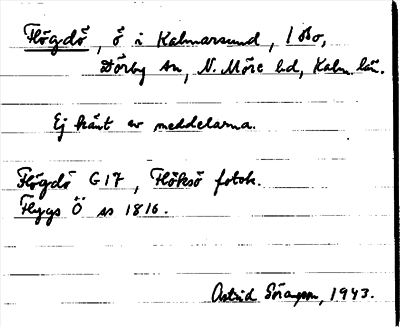 Flögdö, ö i Kalmarsund, 1 obo,
Dörby sn, N. Möre hd, Kalm. län.
Ej känt av meddelarna.
Flögdö G17, Flöksö fotok.
Flygs Ö ss 1816.
Astrid 1943.